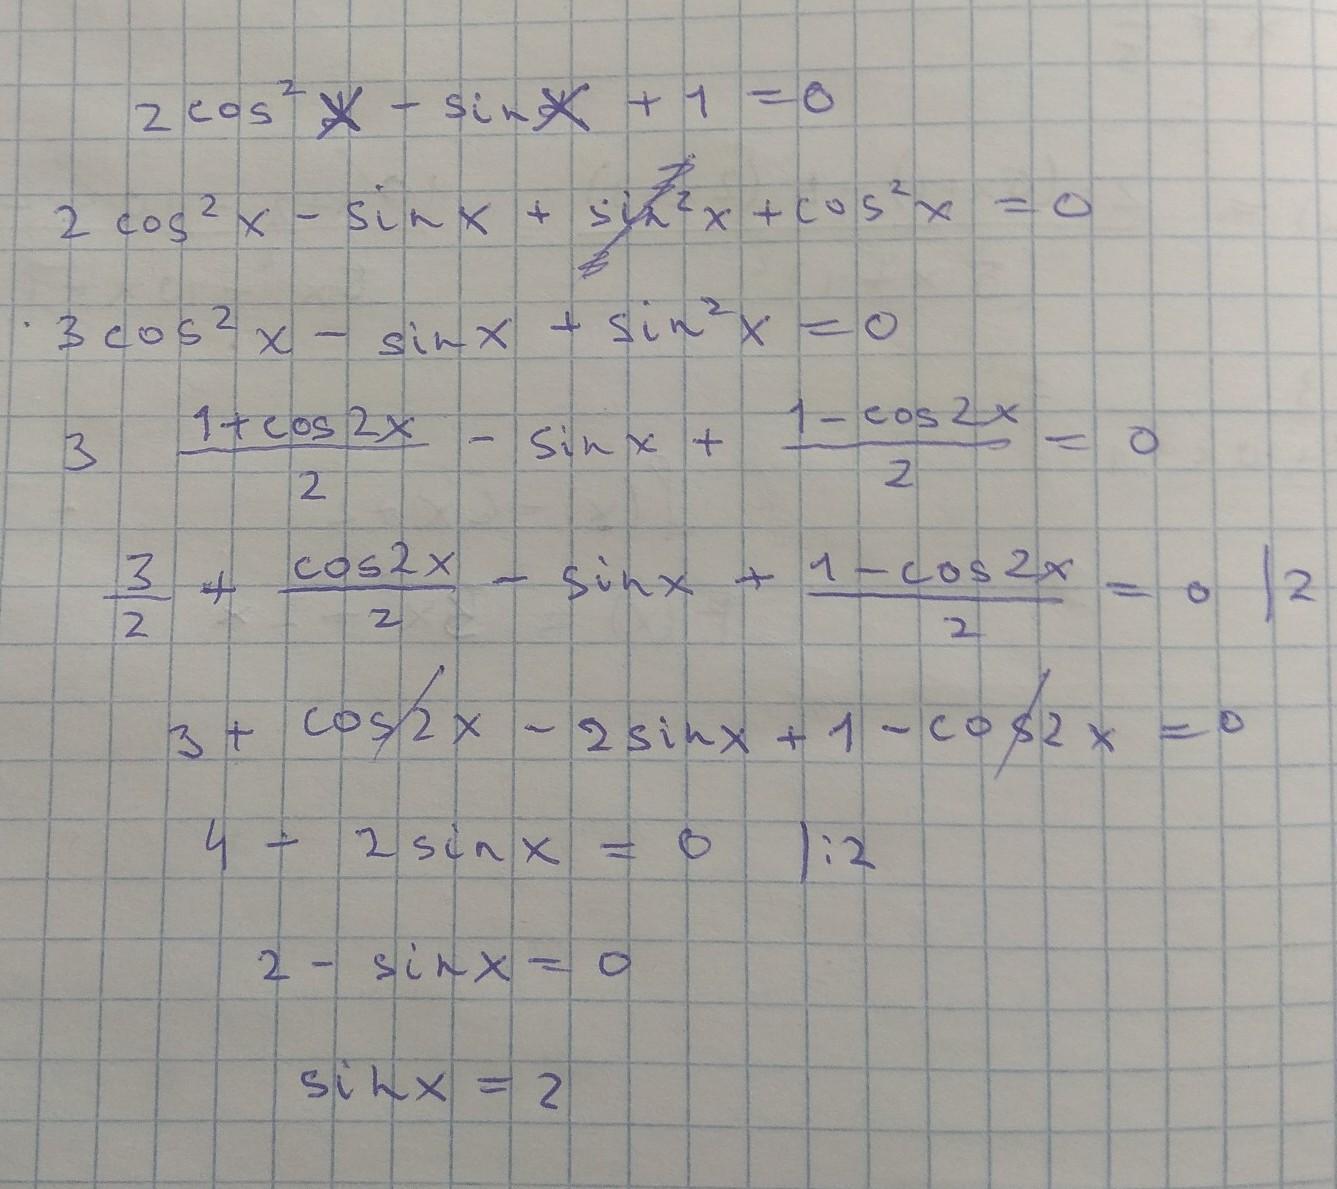 2cos²x - sinx + 1 = 0
2cos²x - sinx + sin²x + cos²x = 0
3cos²x - sinx + sin²x = 0
3 (1+cos2x)/2 - sinx + (1-cos2x)/2 = 0
3/2 + cos2x/2 - sinx + (1-cos2x)/2 = 0 |2
3 + cos2x - 2sinx + 1 - cos2x = 0
4 - 2sinx = 0 |:2
2 - sinx = 0
sinx = 2